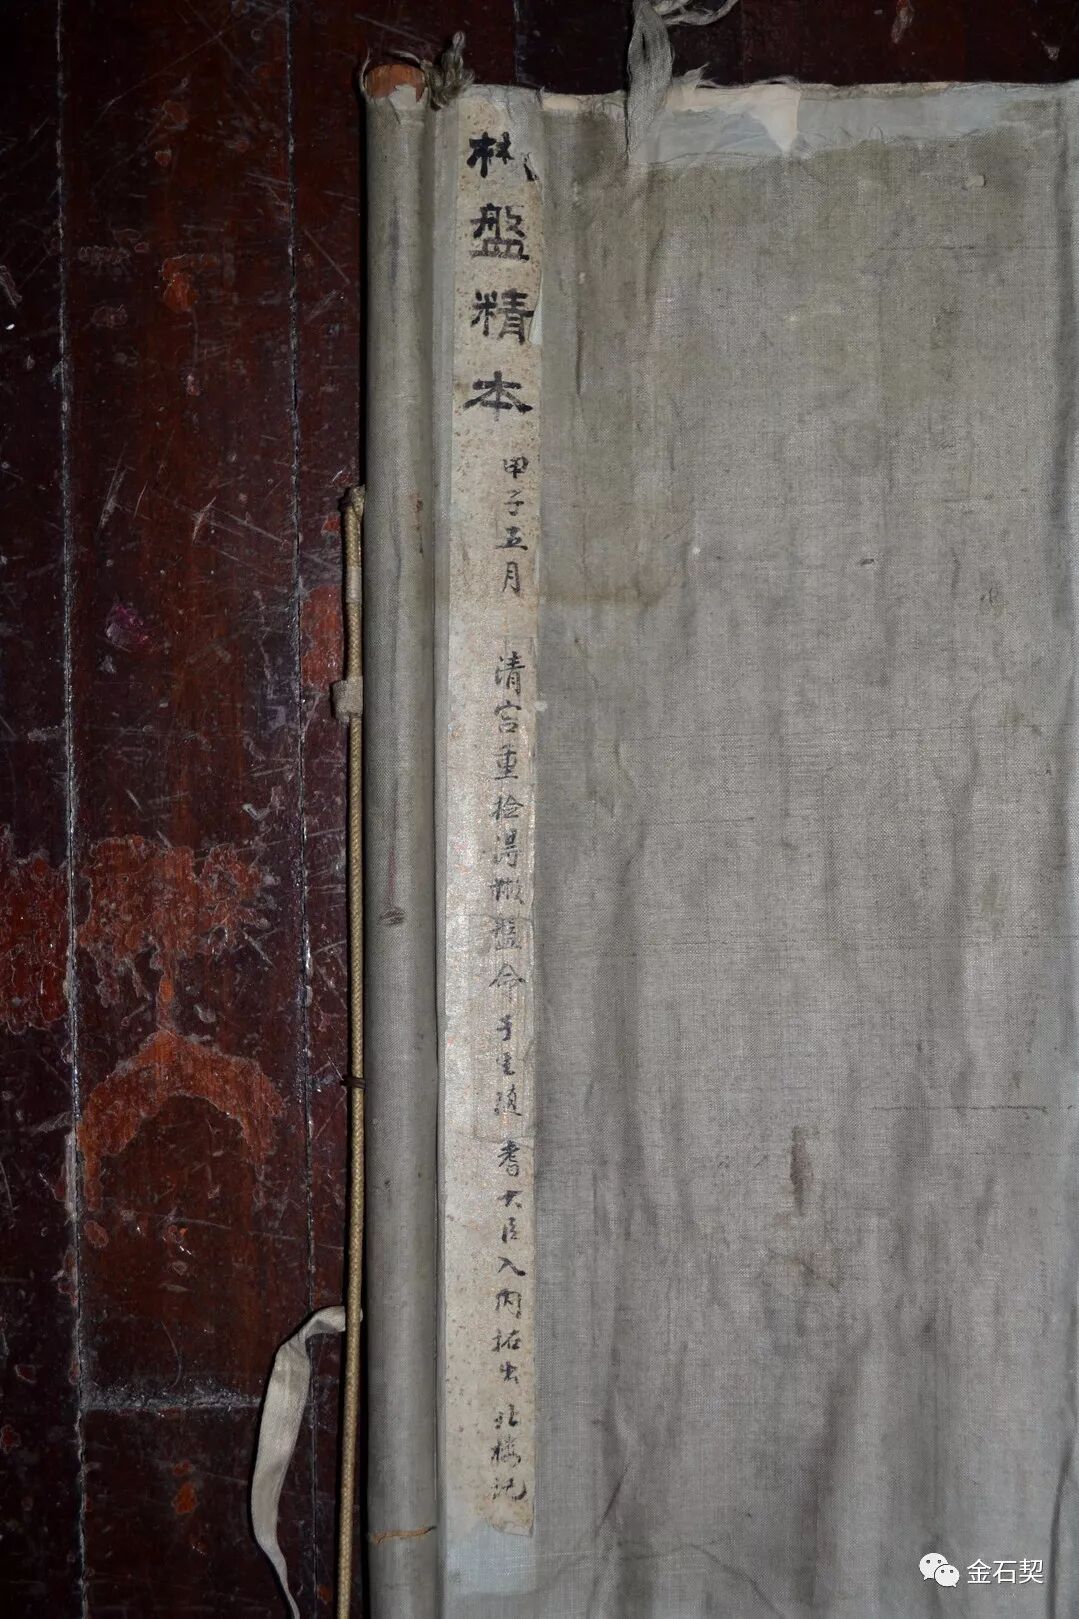 散盤精本
甲子五月 清宮重檢得散盤命 隨 耆大臣入內拓出 北樓記
金石契